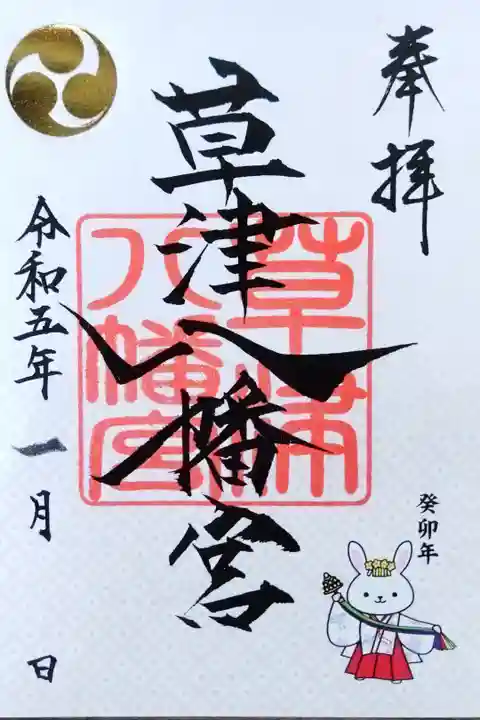 奉拝
草津八幡宮
草津
八幡宮
令和五年 一月 日
癸卯年